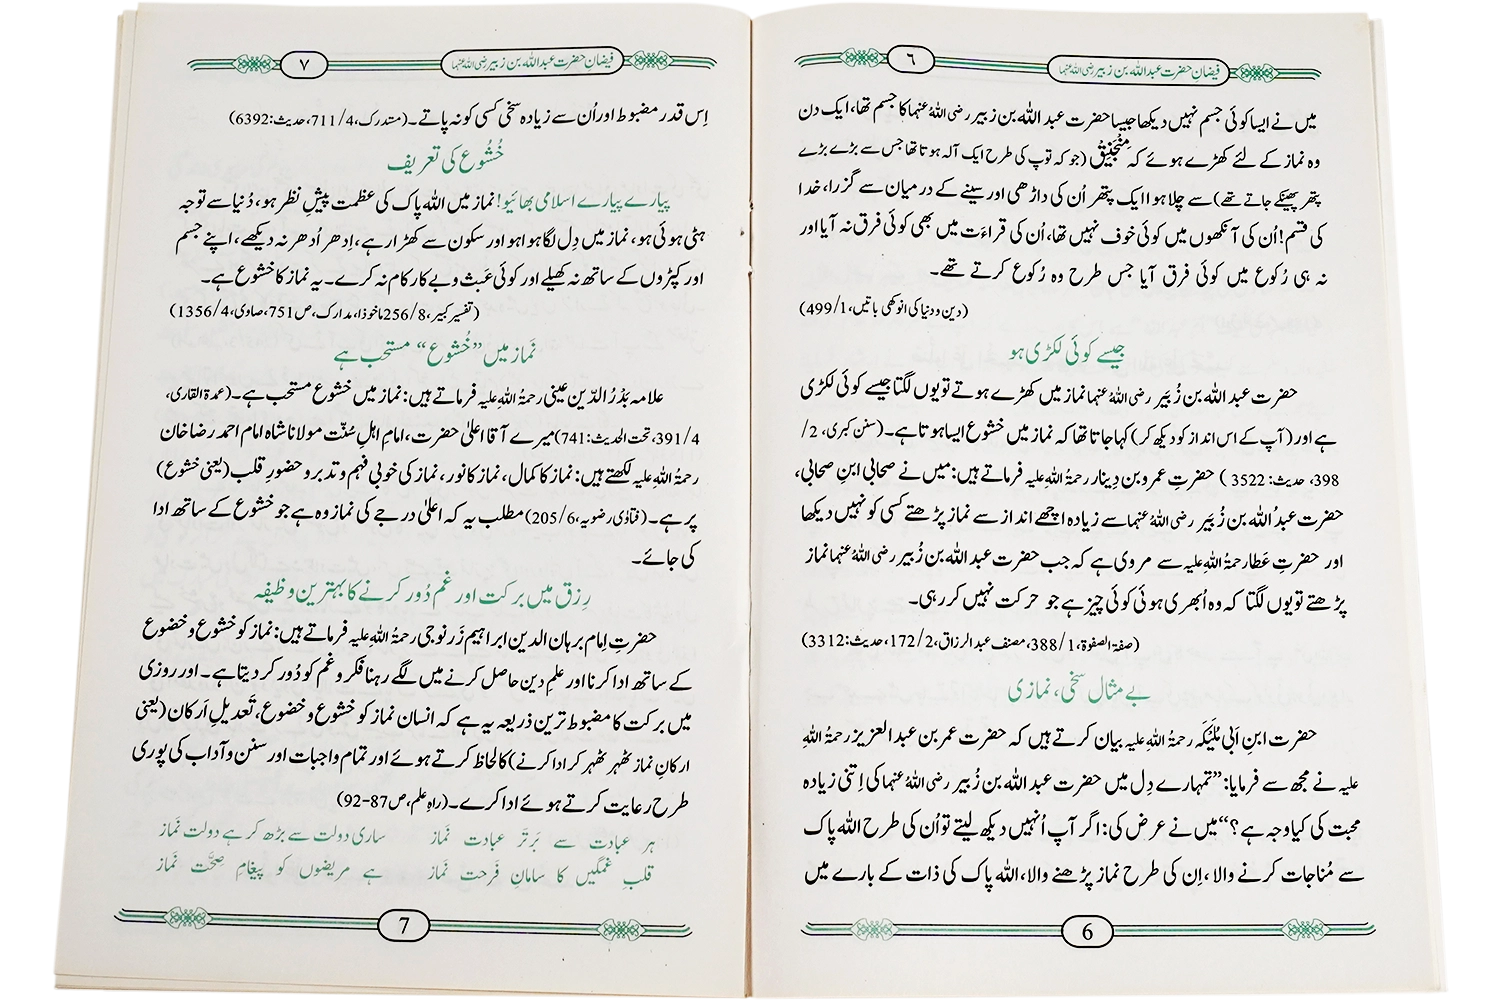 فیضانِ حضرت عبد اللہ بن زبیر رضی اللہ عنہما
٦
میں نے ایسا کوئی جسم نہیں دیکھا جیسا حضرت عبد اللہ بن زبیر رضی اللہُ عنہما کا جسم تھا، ایک دن
وہ نماز کے لئے کھڑے ہوئے کہ مِنْجَنِیْق (جو کہ توپ کی طرح ایک آلہ ہوتا تھا جس سے بڑے بڑے
پتھر پھینکے جاتے تھے) سے چلا ہوا ایک پتھر اُن کی داڑھی اور سینے کے درمیان سے گزرا، خدا
کی قسم! اُن کی آنکھوں میں کوئی خوف نہیں تھا، اُن کی قراءَت میں بھی کوئی فرق نہ آیا اور
نہ ہی رُکوع میں کوئی فرق آیا جس طرح وہ رُکوع کرتے تھے۔
(دین و دنیا کی انوکھی باتیں، 499/1)
جیسے کوئی لکڑی ہو
حضرت عبد اللہ بن زُبَیر رضی اللہُ عنہما نماز میں کھڑے ہوتے تو یوں لگتا جیسے کوئی لکڑی
ہے اور (آپ کے اس انداز کو دیکھ کر) کہا جاتا تھا کہ نماز میں خشوع ایسا ہوتا ہے۔ (سنن کبری، 2/
398، حدیث: 3522) حضرتِ عمرو بن دِینار رحمۃُ اللہِ علیہ فرماتے ہیں: میں نے صحابی ابنِ صحابی،
حضرت عبدُ اللہ بن زُبَیر رضی اللہُ عنہما سے زیادہ اچھے انداز سے نماز پڑھتے کسی کو نہیں دیکھا
اور حضرتِ عَطا رحمۃُ اللہِ علیہ سے مروی ہے کہ جب حضرت عبد اللہ بن زُبیر رضی اللہُ عنہما نماز
پڑھتے تو یوں لگتا کہ وہ اُبھری ہوئی کوئی چیز ہے جو حرکت نہیں کر رہی۔
(صفۃ الصفوۃ، 388/1، مصنف عبد الرزاق، 172/2، حدیث: 3312)
بے مثال سخی، نمازی
حضرت ابنِ اَبی مُلَیْکَہ رحمۃُ اللہِ علیہ بیان کرتے ہیں کہ حضرت عمر بن عبد العزیز رحمۃُ اللہِ
علیہ نے مجھ سے فرمایا: ”تمہارے دِل میں حضرت عبد اللہ بن زُبیر رضی اللہُ عنہما کی اِتنی زیادہ
محبت کی کیا وجہ ہے؟“ میں نے عرض کی: اگر آپ اُنہیں دیکھ لیتے تو اُن کی طرح اللہ پاک
سے مُناجات کرنے والا، اِن کی طرح نماز پڑھنے والا، اللہ پاک کی ذات کے بارے میں
6
فیضانِ حضرت عبد اللہ بن زبیر رضی اللہ عنہما
٧
اِس قدر مضبوط اور اُن سے زیادہ سخی کسی کو نہ پاتے۔ (متدرک، 711/4، حدیث: 6392)
خُشُوع کی تعریف
پیارے پیارے اسلامی بھائیو! نماز میں اللہ پاک کی عظمت پیشِ نظر ہو، دُنیا سے توجہ
ہٹی ہوئی ہو، نماز میں دِل لگا ہوا ہو اور سکون سے کھڑا رہے، اِدھر اُدھر نہ دیکھے، اپنے جسم
اور کپڑوں کے ساتھ نہ کھیلے اور کوئی عَبث و بے کار کام نہ کرے۔ یہ نماز کا خشوع ہے۔
(تفسیر کبیر، 256/8 ماخوذا، مدارک، ص751، صاوی، 1356/4)
نَماز میں ”خُشوع“ مستحب ہے
علامہ بَدْرُ الدّین عینی رحمۃُ اللہِ علیہ فرماتے ہیں: نماز میں خشوع مستحب ہے۔ (عمدۃ القاری،
391/4، تحت الحدیث: 741) میرے آقا اعلیٰ حضرت، امامِ اہلِ سُنّت مولانا شاہ امام احمد رضا خان
رحمۃُ اللہِ علیہ لکھتے ہیں: نماز کا کمال، نماز کا نور، نماز کی خوبی فہم و تدبر و حضورِ قلب (یعنی خشوع)
پر ہے۔ (فتاوٰی رضویہ، 205/6) مطلب یہ کہ اعلیٰ درجے کی نماز وہ ہے جو خشوع کے ساتھ ادا
کی جائے۔
رِزق میں برکت اور غم دُور کرنے کا بہترین وظیفہ
حضرتِ اِمام برہان الدین ابراہیم زَرنوجی رحمۃُ اللہِ علیہ فرماتے ہیں: نماز کو خشوع و خضوع
کے ساتھ ادا کرنا اور علمِ دین حاصل کرنے میں لگے رہنا فکر و غم کو دُور کر دیتا ہے۔ اور روزی
میں برکت کا مضبوط ترین ذریعہ یہ ہے کہ انسان نماز کو خشوع و خضوع، تَعدیلِ اَرکان (یعنی
ارکانِ نماز ٹھہر ٹھہر کر ادا کرنے) کا لحاظ کرتے ہوئے اور تمام واجبات اور سنن و آداب کی پوری
طرح رعایت کرتے ہوئے ادا کرے۔ (راہِ علم، ص87-92)
ہر عبادت سے بَرتَر عبادت نَماز ساری دولت سے بڑھ کر ہے دولت نَماز
قلبِ غمگیں کا سامانِ فَرحت نَماز ہے مریضوں کو پیغامِ صحَّت نَماز
7